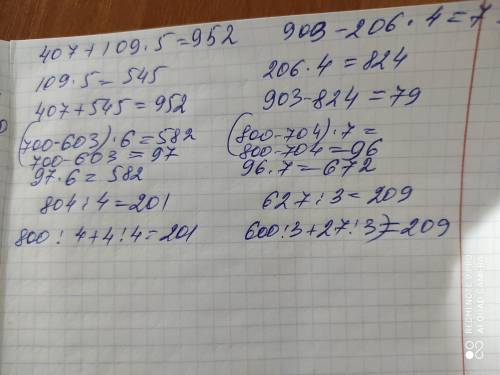 407+109·5=952
109·5=545
407+545=952
(700-603)·6=582
700-603=97
97·6=582
804:4=201
800:4+4:4=201
903-206·4=7
206·4=824
903-824=79
(800-704)·7=
800-704=96
96·7=672
627:3=209
600:3+27:3=209
REDMI NOTE 8 PRO
AI QUAD CAMERA